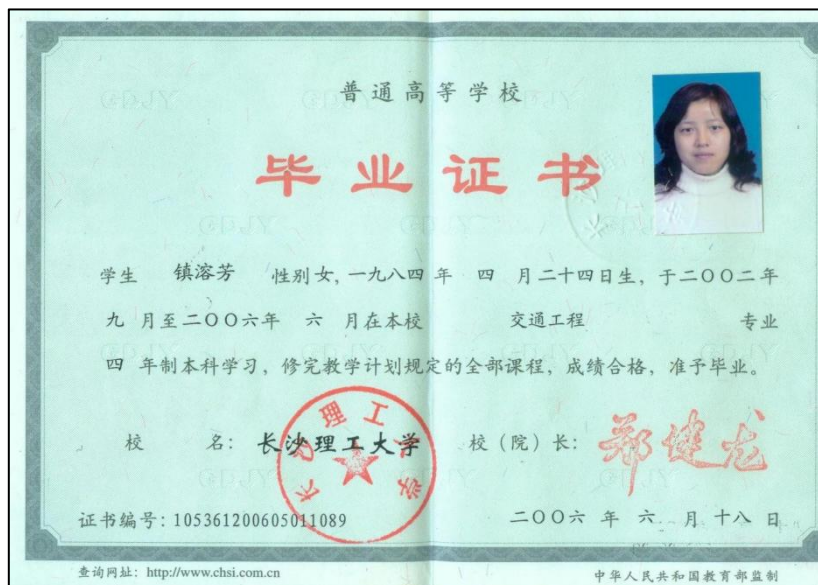 普通高等学校
毕业证书
学生 镇溶芳 性别女,一九八四年 四 月二十四日生,于二〇〇二年
九 月至二〇〇六年 六 月在本校 交通工程 专业
四 年制本科学习,修完教学计划规定的全部课程,成绩合格,准予毕业。
校 名:长沙理工大学 校(院)长:郑健龙
长沙理工大学
证书编号:105361200605011089 二〇〇六 年 六 月 十八 日
查询网址:http://www.chsi.com.cn 中华人民共和国教育部监制